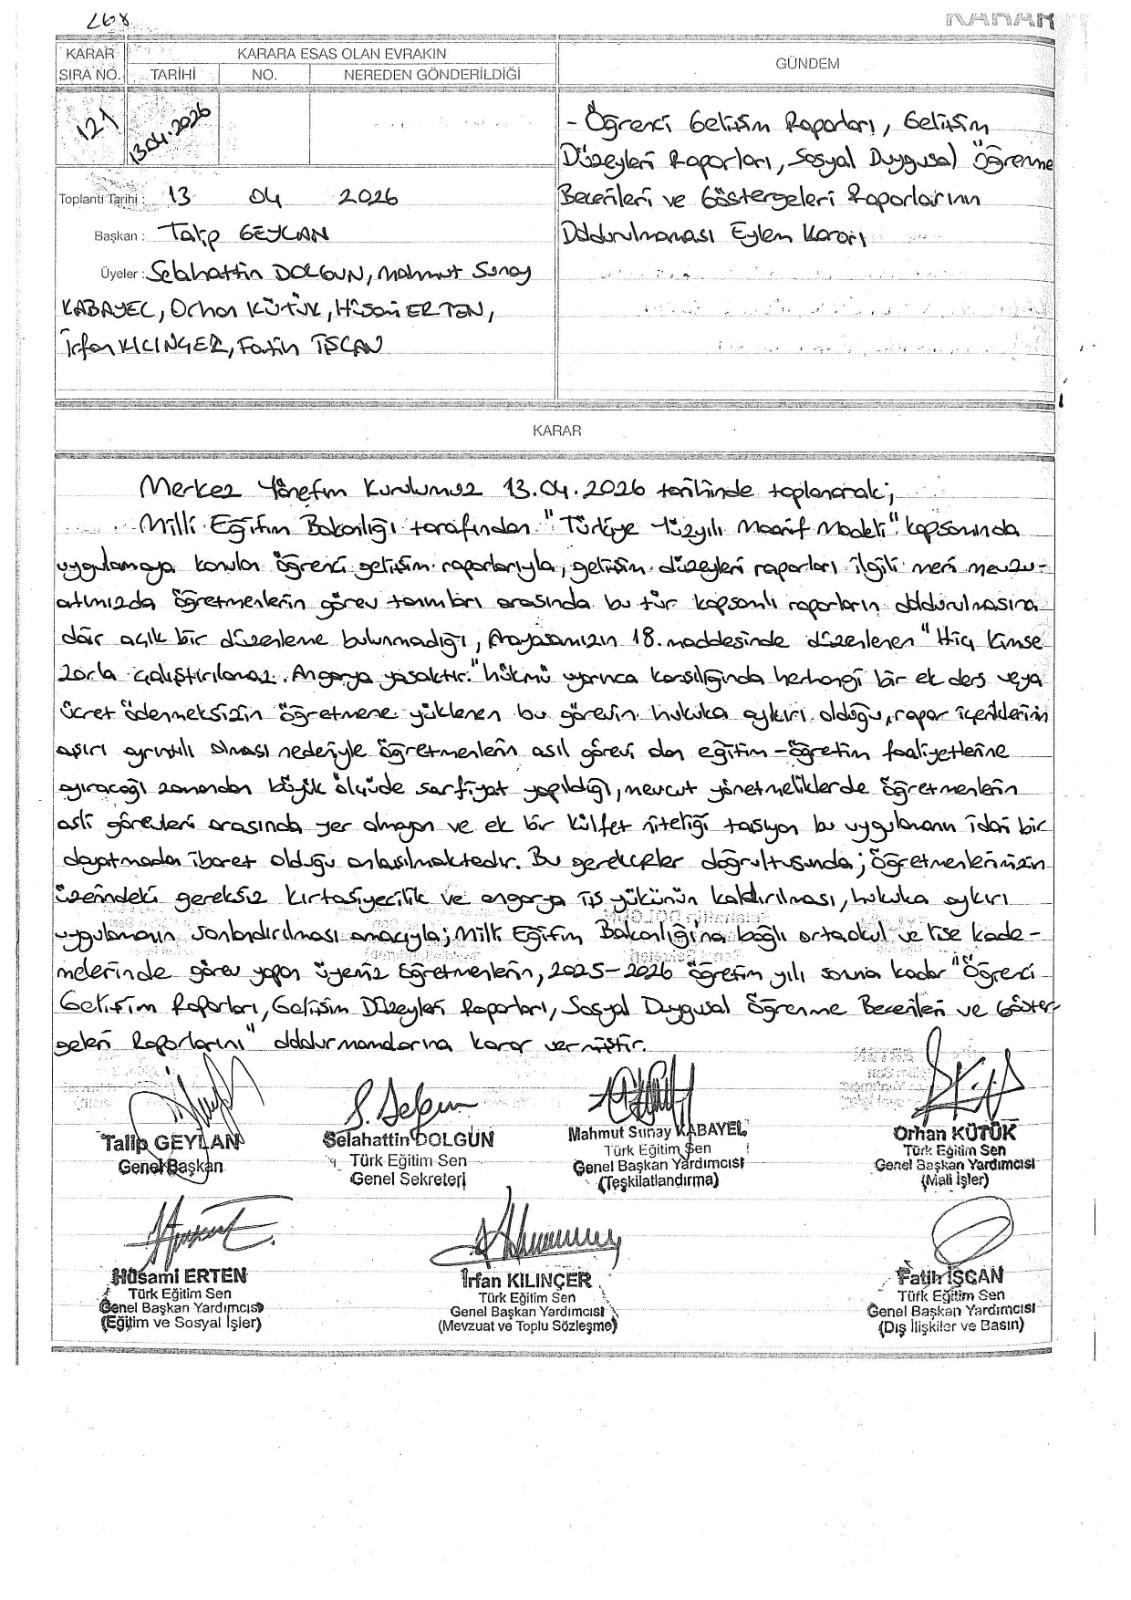 268
KARAR
KARAR SIRA NO.
KARARA ESAS OLAN EVRAKIN
TARİHİ
NO.
NEREDEN GÖNDERİLDİĞİ
GÜNDEM
121
13.04.2026
- Öğrenci Gelişim Raporları, Gelişim
Düzeyleri Raporları, Sosyal Duygusal Öğrenme
Becerileri ve Göstergeleri Raporlarının
Doldurulmaması Eylem Kararı
Toplantı Tarihi : 13 04 2026
Başkan : Talip GEYLAN
Üyeler : Selahattin DOLGUN, Mahmut Sunay
KABAYEL, Orhan KÜTÜK, Hüsami ERTEN,
İrfan KILINÇER, Fatih İŞCAN
KARAR
Merkez Yönetim Kurulumuz 13.04.2026 tarihinde toplanarak;
Milli Eğitim Bakanlığı tarafından "Türkiye Yüzyılı Maarif Modeli" kapsamında
uygulamaya konulan öğrenci gelişim raporlarıyla, gelişim düzeyleri raporları ilgili meri mevzu-
atımızda öğretmenlerin görev tanımları arasında bu tür kapsamlı raporların doldurulmasına
dair açık bir düzenleme bulunmadığı, Anayasamızın 18. maddesinde düzenlenen "Hiç kimse
zorla çalıştırılamaz. Angarya yasaktır." hükmü uyarınca karşılığında herhangi bir ek ders veya
ücret ödenmeksizin öğretmene yüklenen bu görevin hukuka aykırı olduğu, rapor içeriklerinin
aşırı ayrıntılı olması nedeniyle öğretmenlerin asıl görevi olan eğitim-öğretim faaliyetlerine
ayıracağı zamandan büyük ölçüde sarfiyat yapıldığı, mevcut yönetmeliklerde öğretmenlerin
asli görevleri arasında yer almayan ve ek bir külfet niteliği taşıyan bu uygulamanın idari bir
dayatmadan ibaret olduğu anlaşılmaktadır. Bu gerekçeler doğrultusunda; öğretmenlerimizin
üzerindeki gereksiz kırtasiyecilik ve angarya iş yükünün kaldırılması, hukuka aykırı
uygulamanın sonlandırılması amacıyla; Milli Eğitim Bakanlığı'na bağlı ortaokul ve lise kade-
melerinde görev yapan üyemiz öğretmenlerin, 2025-2026 öğretim yılı sonuna kadar "Öğrenci
Gelişim Raporları, Gelişim Düzeyleri Raporları, Sosyal Duygusal Öğrenme Becerileri ve Göster-
geleri Raporlarını" doldurmamalarına karar vermiştir.
Talip GEYLAN
Genel Başkan
Selahattin DOLGUN
Türk Eğitim Sen
Genel Sekreteri
Mahmut Sunay KABAYEL
Türk Eğitim Sen
Genel Başkan Yardımcısı
(Teşkilatlandırma)
Orhan KÜTÜK
Türk Eğitim Sen
Genel Başkan Yardımcısı
(Mali İşler)
Hüsami ERTEN
Türk Eğitim Sen
Genel Başkan Yardımcısı
(Eğitim ve Sosyal İşler)
İrfan KILINÇER
Türk Eğitim Sen
Genel Başkan Yardımcısı
(Mevzuat ve Toplu Sözleşme)
Fatih İŞCAN
Türk Eğitim Sen
Genel Başkan Yardımcısı
(Dış İlişkiler ve Basın)